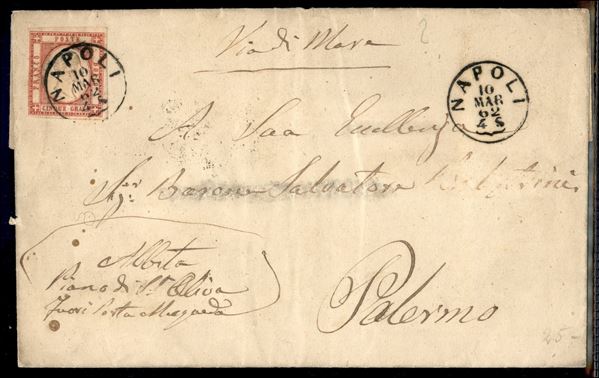 FRANCO
POSTE
CINQUE GRANA
NAPOLI
10
MAR
62
Via di Mare
NAPOLI
10
MAR
62
4 S
A Sua Eccellenza
Barone Salvatore
Abita
Piano di Sta Oliva
Fuori Porta
Palermo
25-